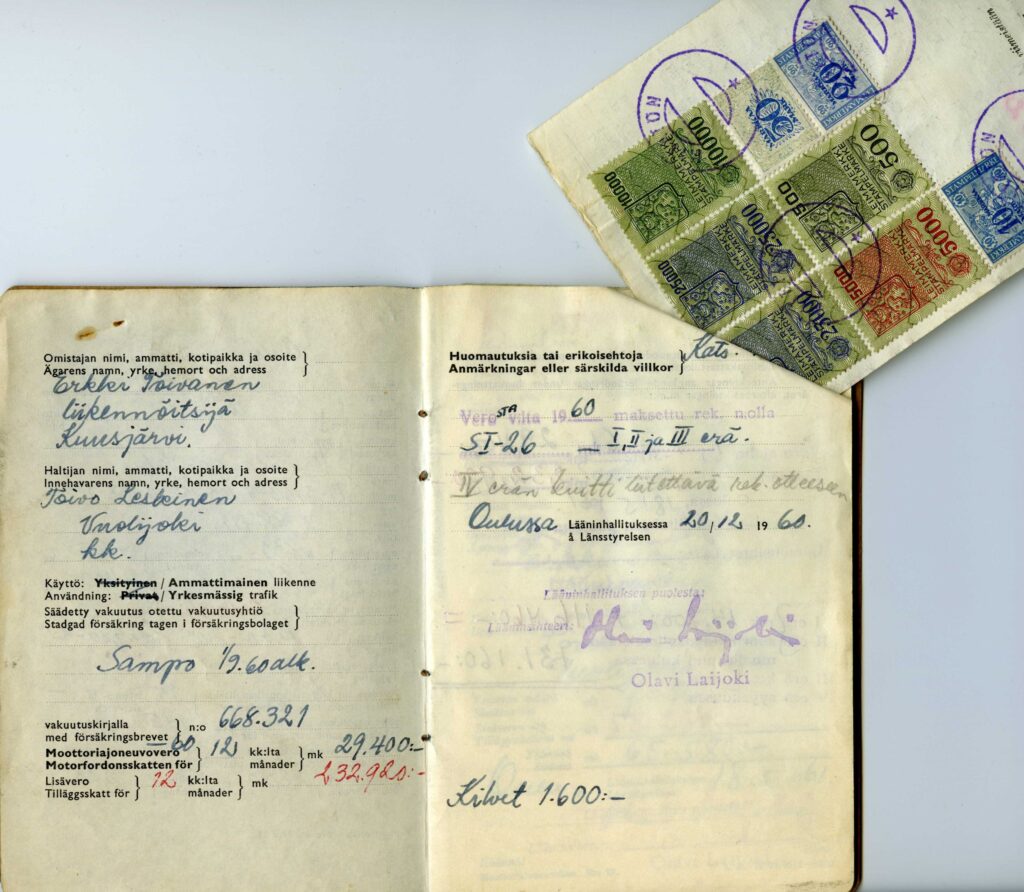 Omistajan nimi, ammatti, kotipaikka ja osoite
Ägarens namn, yrke, hemort och adress
Erkki Toivanen
liikennöitsijä
Kuusjärvi.
Haltijan nimi, ammatti, kotipaikka ja osoite
Innehavarens namn, yrke, hemort och adress
Toivo Leskinen
kk.
Käyttö: Yksityinen / Ammattimainen liikenne
Användning: Privat / Yrkesmässig trafik
Säädetty vakuutus otettu vakuutusyhtiö
Stadgad försäkring tagen i försäkringsbolaget
Sampo 1/9.60 alk.
vakuutuskirjalla
med försäkringsbrevet
n:o 668.321
Moottoriajoneuvovero
Motorfordonsskatten för
60 12 kk:lta
månader
mk 29.400:-
Lisävero
Tilläggsskatt för
12 kk:lta
månader
mk 232.920:-
Huomautuksia tai erikoisehtoja
Anmärkningar eller särskilda villkor
Kats.
Verosta v:lta 1960 maksettu rek. n:olla
SI-26 — I, II ja III erä.
IV erän kuitti liitettävä rek. otteeseen
Oulussa Lääninhallituksessa 20/12 1960.
å Länsstyrelsen
Lääninhallituksen puolesta:
Olavi Laijoki
Kilvet 1.600:-
10000
10000
LEIMAMERKKI
STÄMPELMÄRKE
50
20
500
500
LEIMAMERKKI
STÄMPELMÄRKE
25000
25000
LEIMAMERKKI
STÄMPELMÄRKE
5000
5000
LEIMAMERKKI
STÄMPELMÄRKE
10
25000
LEIMAMERKKI
STÄMPELMÄRKE